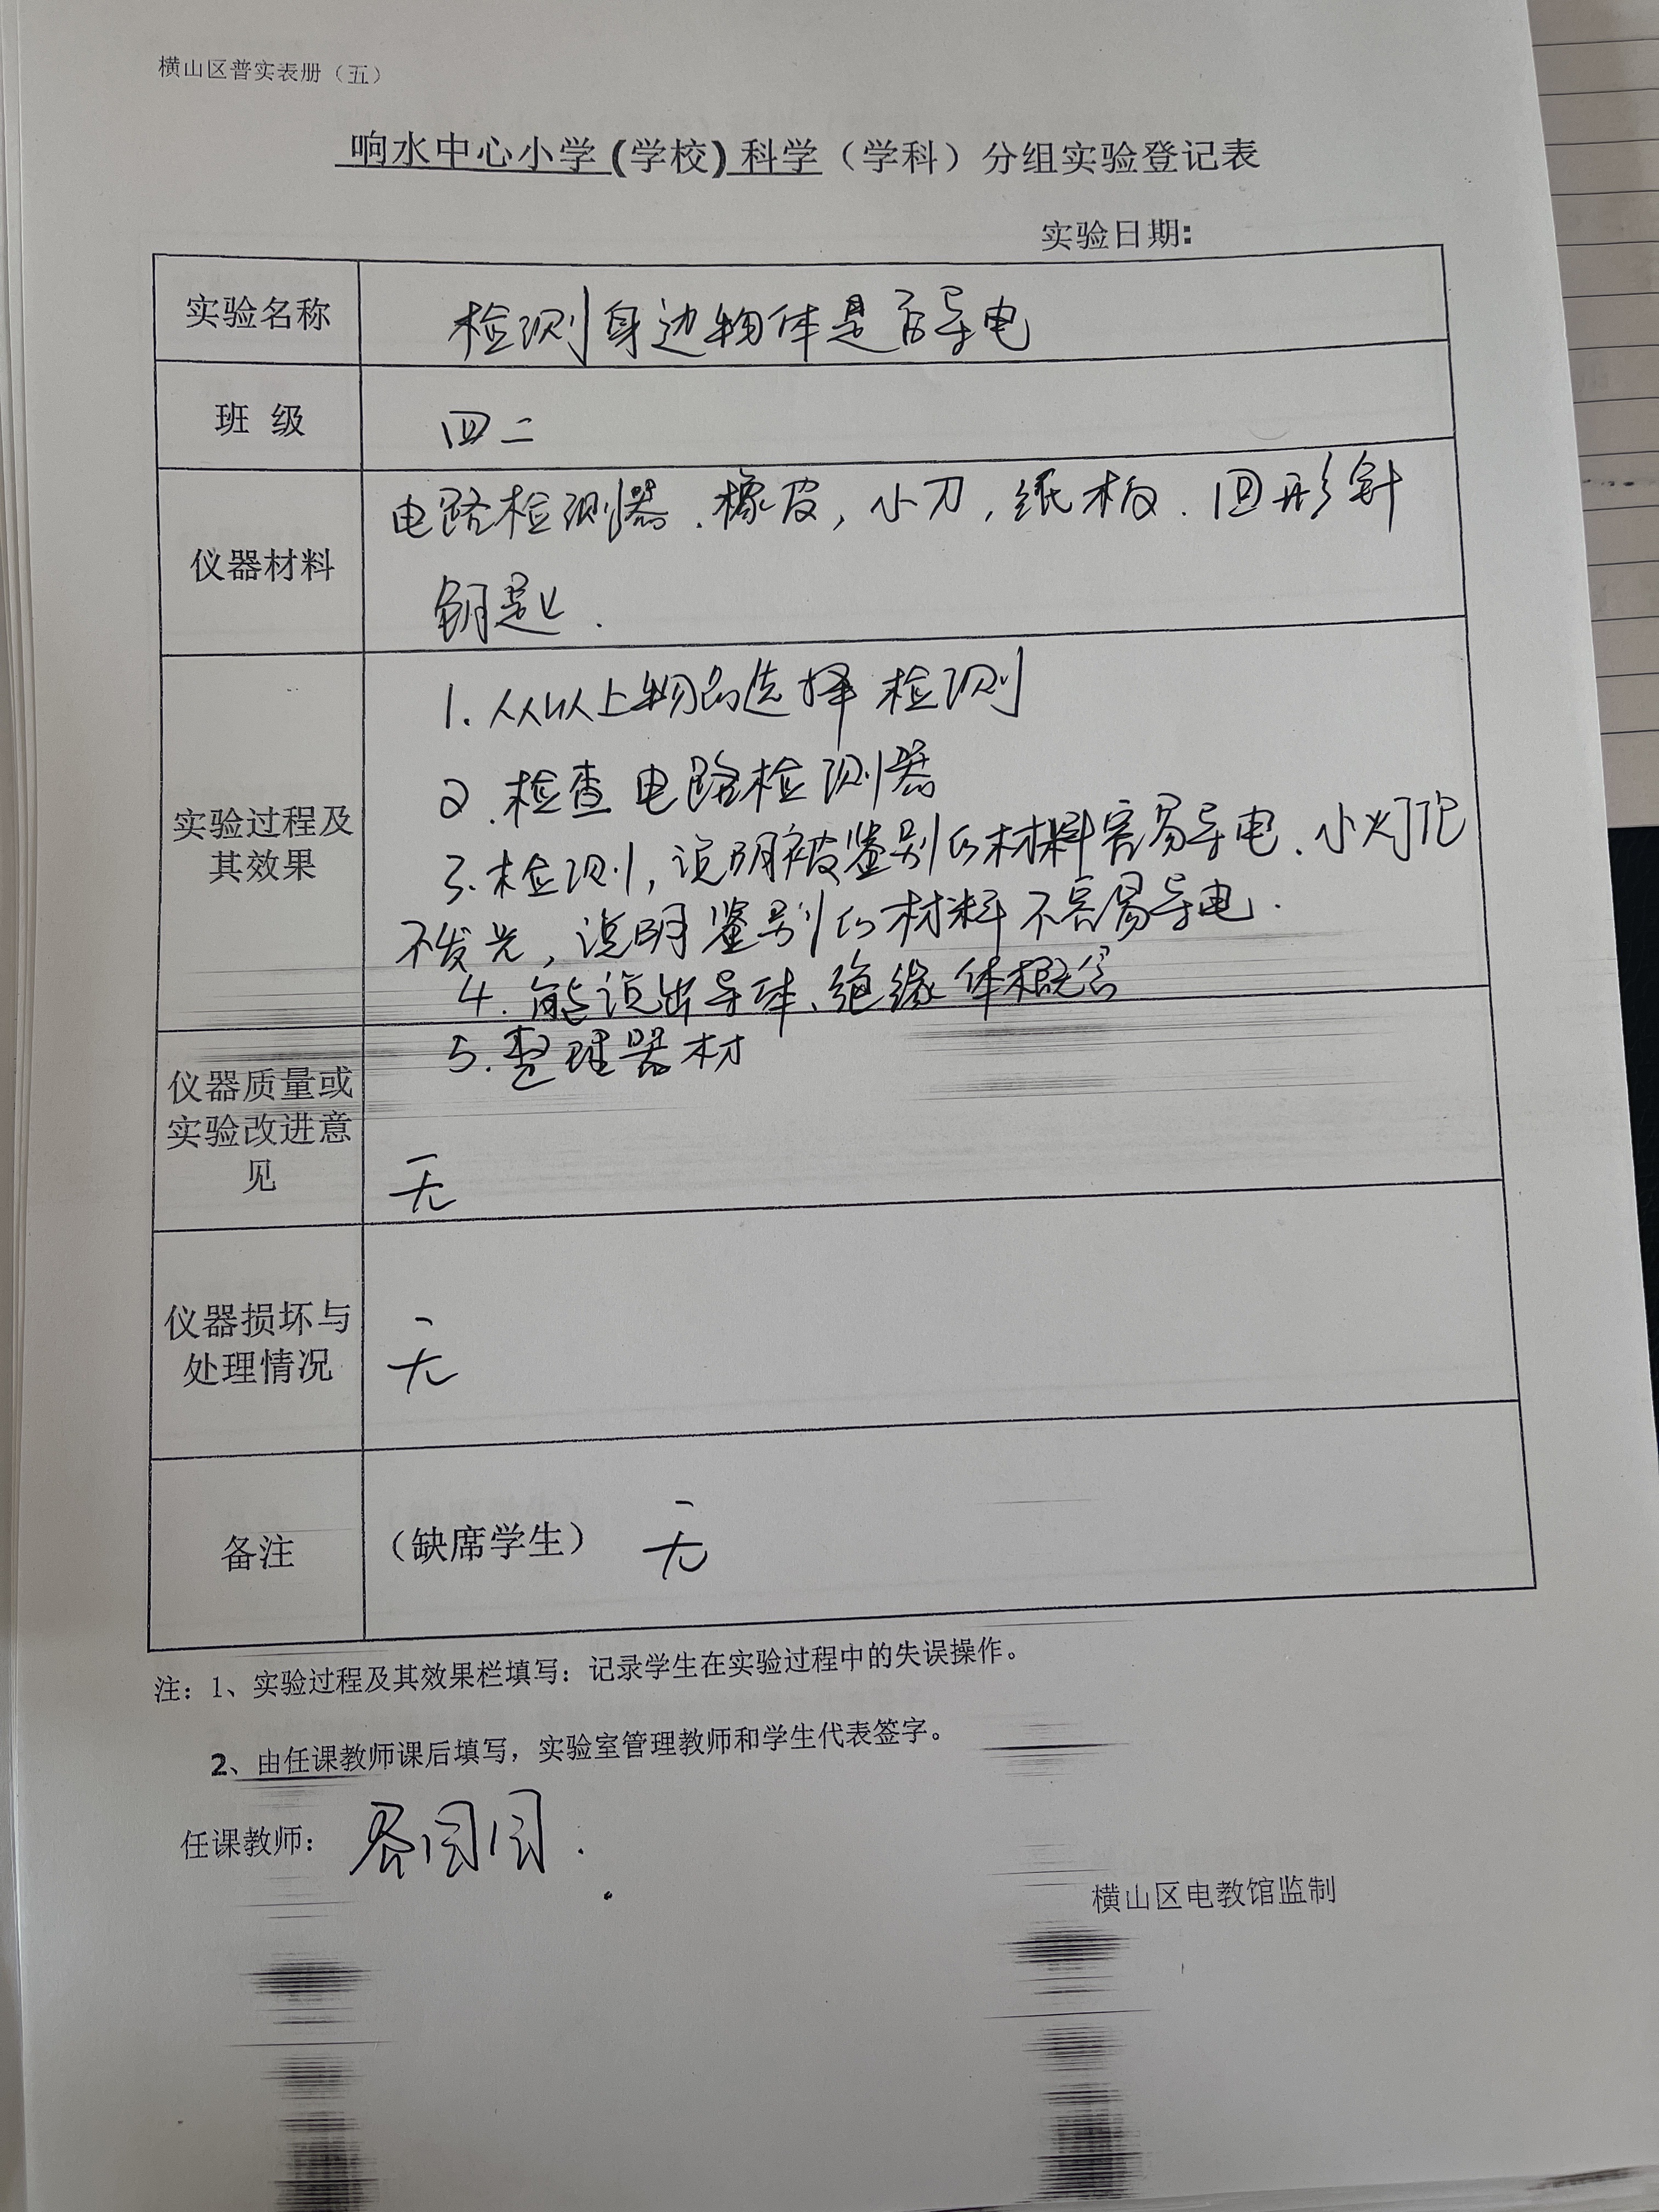 横山区普实表册（五）
响水中心小学(学校)科学（学科）分组实验登记表
实验日期:
实验名称
检测身边物体是否导电
班 级
四二
仪器材料
电路检测器、橡皮，小刀，纸板、回形针
钥匙．
实验过程及
其效果
1. 从以上物品选择检测
2. 检查电路检测器
3. 检测，说明被鉴别的材料容易导电、小灯泡
不发光，说明鉴别的材料不容易导电．
4. 能说出导体、绝缘体概念
5. 整理器材
仪器质量或
实验改进意
见
无
仪器损坏与
处理情况
无
备注
（缺席学生） 无
注：1、实验过程及其效果栏填写：记录学生在实验过程中的失误操作。
2、由任课教师课后填写，实验室管理教师和学生代表签字。
任课教师：
横山区电教馆监制